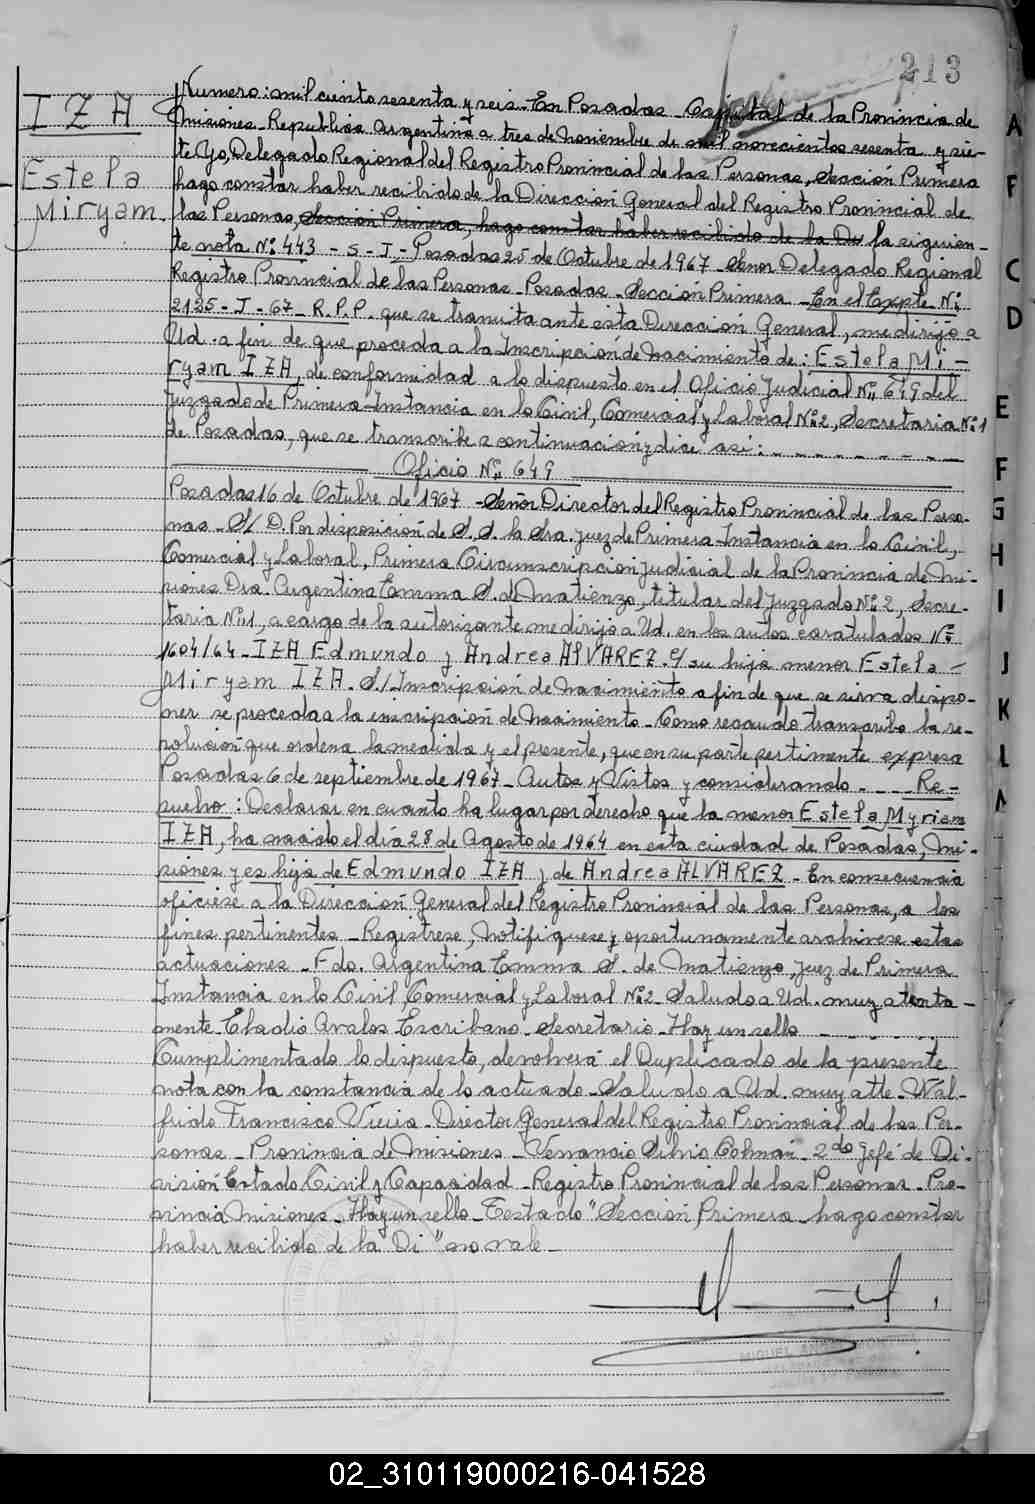 213
IZA
Estela
Miryam.
Numero: mil ciento sesenta y seis - En Posadas Capital de la Provincia de
Misiones - Republica Argentina a tres de Noviembre de mil novecientos sesenta y sie-
te Yo, Delegado Regional del Registro Provincial de las Personas, Sección Primera
hago constar haber recibido de la Dirección General del Registro Provincial de
las Personas, Sección Primera, hago constar haber recibido de la Di la siguien-
te nota Nº 443 - S - I - Posadas 25 de Octubre de 1967 - Señor Delegado Regional
Registro Provincial de las Personas - Posadas - Sección Primera - En el Expte Nº
2135 - I - 67 - R. P. P. que se tramita ante esta Dirección General, me dirijo a
Ud. a fin de que proceda a la Inscripción de Nacimiento de: Estela Mi-
ryam IZA, de conformidad a lo dispuesto en el Oficio Judicial Nº 649 del
Juzgado de Primera Instancia en lo Civil, Comercial y Laboral Nº 2, Secretaria Nº 1
de Posadas, que se transcribe a continuación y dice así:
Oficio Nº 649
Posadas 16 de Octubre de 1967 - Señor Director del Registro Provincial de las Perso-
nas - S/ D. Por disposición de S. S. la Sra. Juez de Primera Instancia en lo Civil,
Comercial y Laboral, Primera Circunscripción Judicial de la Provincia de Mi-
siones Dra. Argentina Emma S. de Matienzo, titular del Juzgado Nº 2, Secre-
taria Nº 1, a cargo de la autorizante me dirijo a Ud. en los autos caratulados Nº
1604/64 - IZA Edmundo y Andrea ALVAREZ e/ su hija menor Estela -
Miryam IZA. S/ Inscripción de Nacimiento a fin de que se sirva dispo-
ner se proceda a la inscripción de Nacimiento - Como recaudo transcribo la re-
solución que ordena la medida y el presente, que en su parte pertinente expresa
Posadas 6 de septiembre de 1967 - Autos y Vistos y considerando - - - Re-
suelvo: Declarar en cuanto ha lugar por derecho que la menor Estela Myriam
IZA, ha nacido el día 28 de Agosto de 1964 en esta ciudad de Posadas, Mi-
siones y es hija de Edmundo IZA y de Andrea ALVAREZ - En consecuencia
oficiese a la Dirección General del Registro Provincial de las Personas, a los
fines pertinentes - Registrese, Notifiquese y oportunamente archivese estas
actuaciones - Fdo. Argentina Emma S. de Matienzo, Juez de Primera
Instancia en lo Civil Comercial y Laboral Nº 2 - Saludo a Ud. muy atenta -
mente - Eladio Avalos Escribano - Secretario - Hay un sello
Cumplimentado lo dispuesto, devolverá el Duplicado de la presente
nota con la constancia de lo actuado - Saludo a Ud. muy atte - Wal-
frido Francisco - Director General del Registro Provincial de las Per-
sonas - Provincia de Misiones - Venancio Silvio Colman - 2do Jefe de Di-
visión Estado Civil y Capacidad - Registro Provincial de las Personas - Pro-
vincia Misiones - Hay un sello - Testado "Sección Primera hago constar
haber recibido de la Di" no vale -
MIGUEL ANGEL
A
F
C
D
E
F
G
H
I
J
K
L
02_310119000216-041528